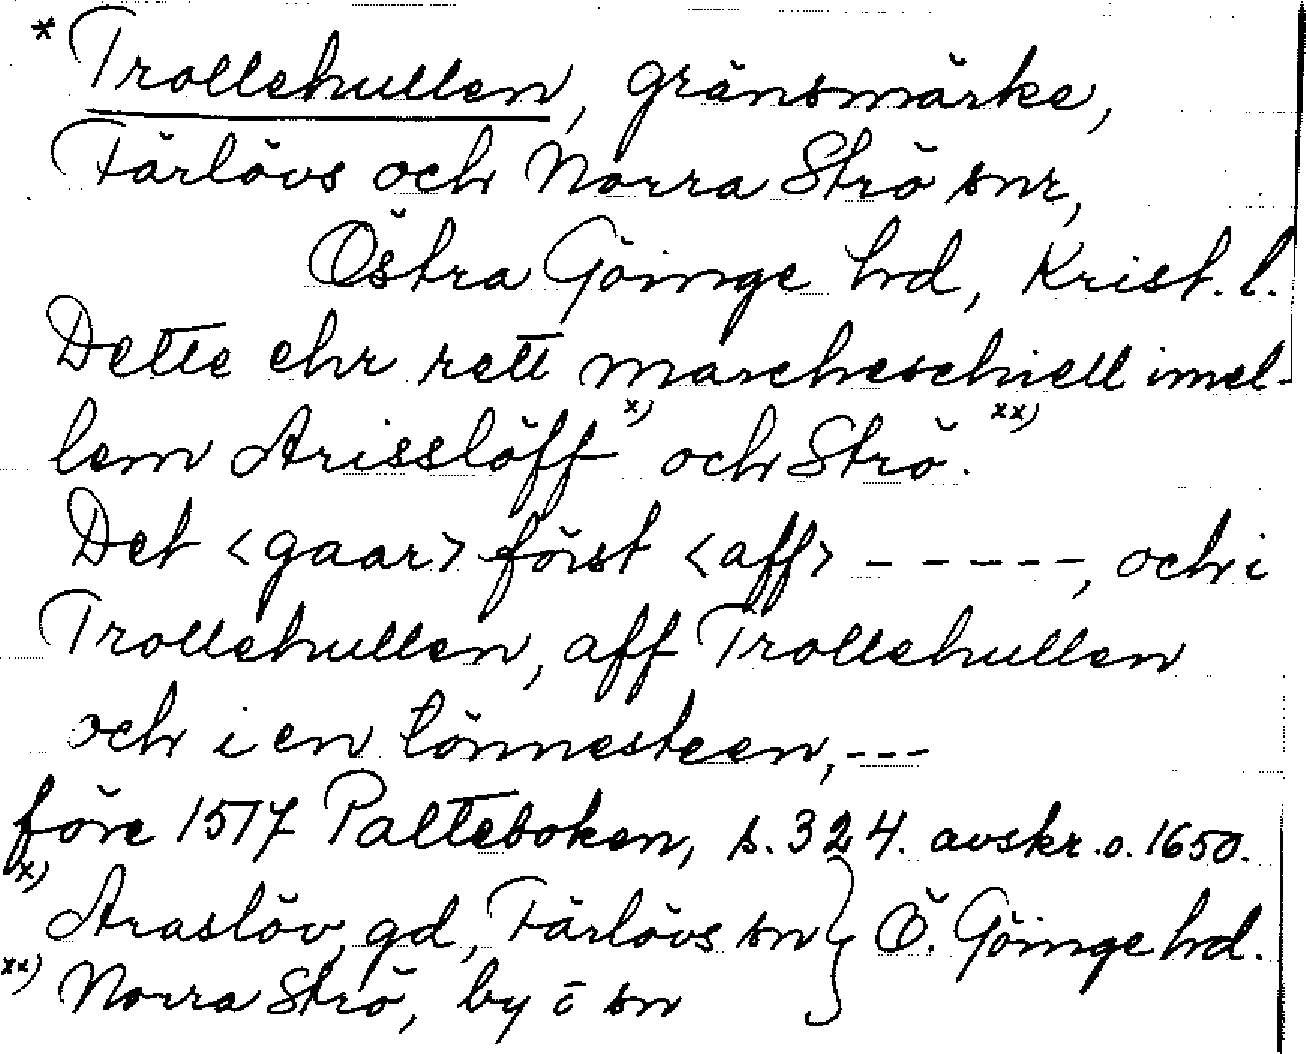 * Trollehullen, gränsmärke,
Färlövs och Norra Strö snr,
Östra Göinge hd, Krist. l.
Dette ehr rett marcheschiell imel-
lem Arisslöff x) och Strö. xx)
Det <gaar> först <aff> - - - - -, och i
Trollehullen, aff Trollehullen
och i en lönnesteen, ---
före 1517 Palteboken, s. 324. avskr. o. 1650.
x) Araslöv, gd, Färlövs sn } Ö. Göinge hd.
xx) Norra Strö, by o sn